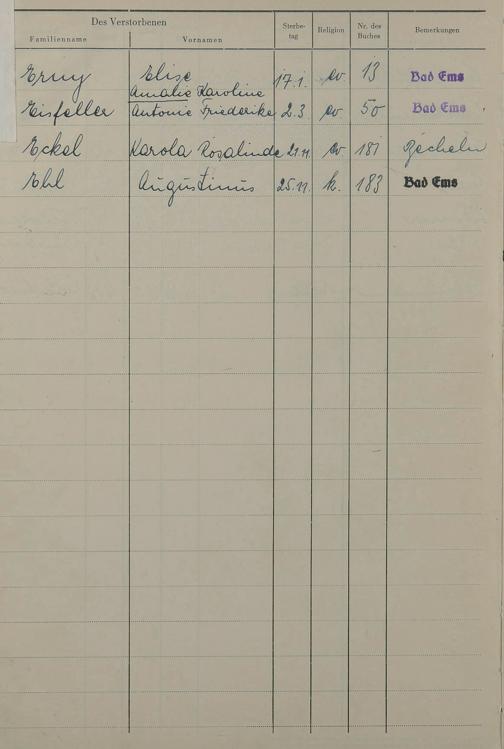 Des Verstorbenen Sterbe- tag Religion Nr. des Buches Bemerkungen
Familienname Vornamen
Erny Elise 17.1. ev 13 Bad Ems
Amalie Karoline
Eisfeller Antonie Friederike 2.3. ev 50 Bad Ems
Eckel Karola Rosalinde 21.11. ev 181 Becheln
Ehl Augustinus 25.11. k. 183 Bad Ems